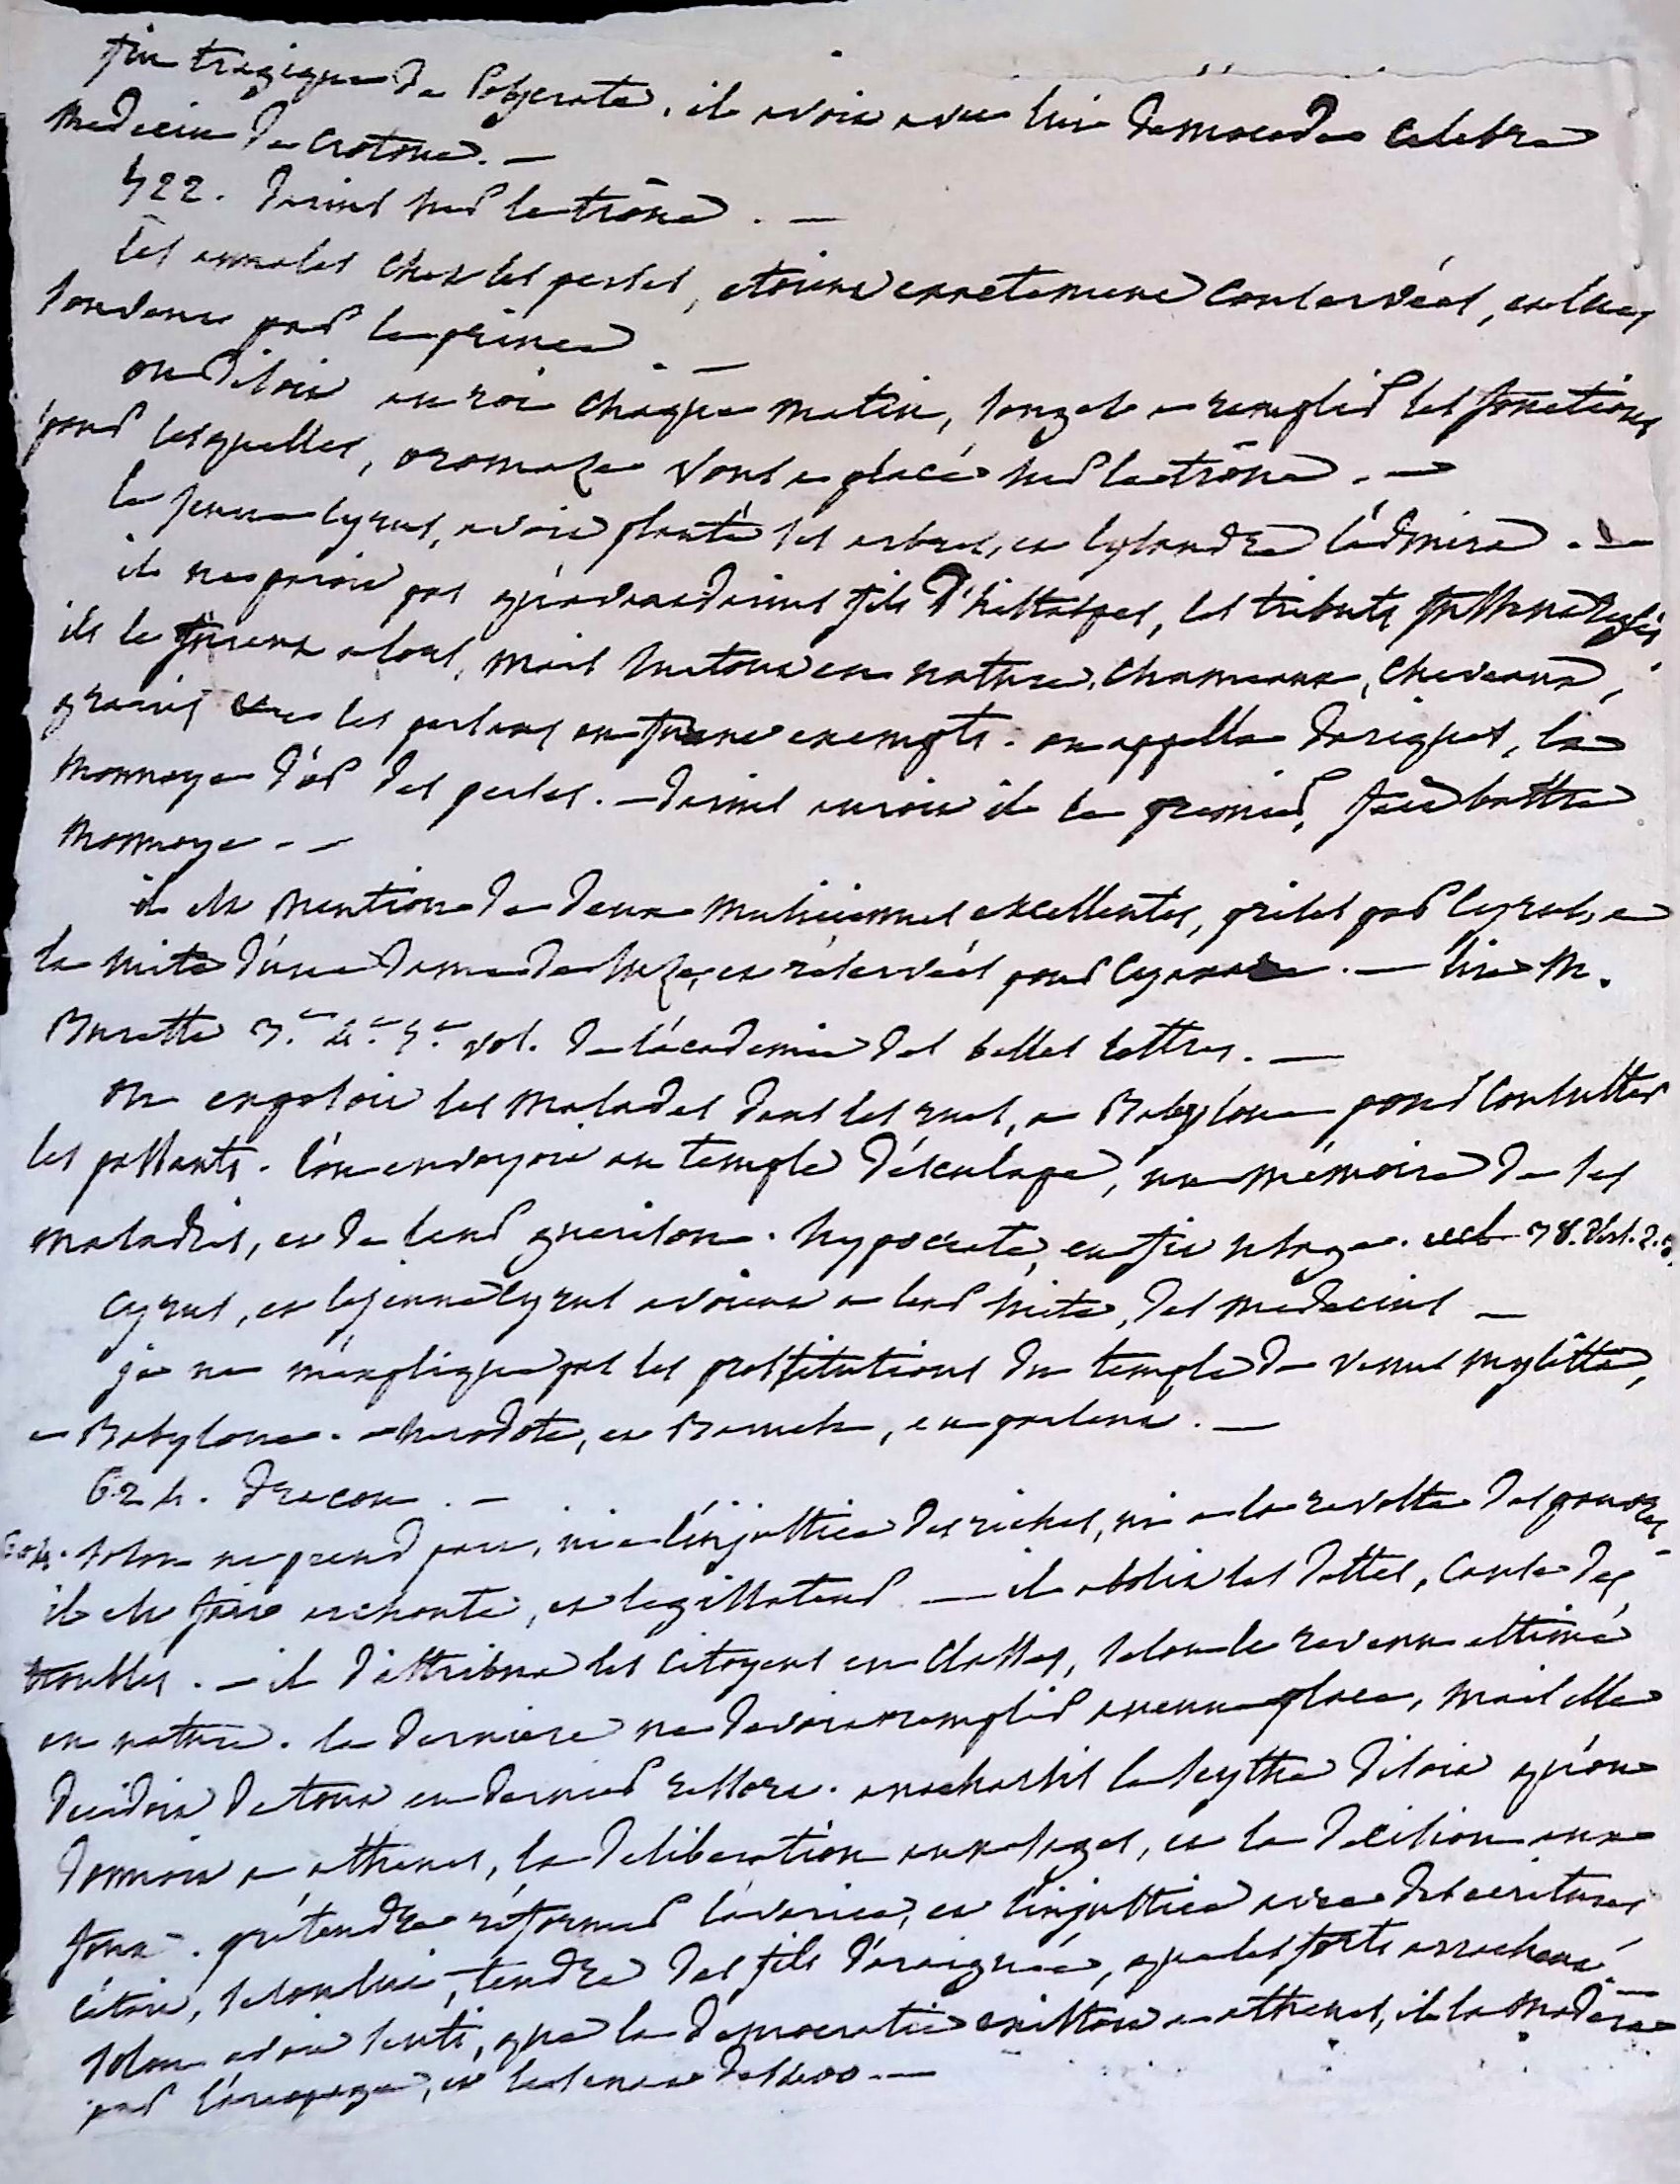 fin tragique de Polycrate, il avoit avec lui democedes celebre
medecin de Crotone. —
522. darius sur le trône. —
les annales chez les perses, étoient exactement conservées, et lues
souvent par le prince. —
on disoit au roi chaque matin, songez a remplir les fonctions
pour lesquelles, oromaze vous a placé sur le trône. —
le jeune cyrus, avoit planté ses arbres, et lysandre l'admira. —
il ne paroit pas qu'avant darius fils d'histaspes, les tributs fussent reglés
ils le furent alors, mais surtout en nature, chameaux, chevaux,
grains les persans en furent exempts. on appella dariques, la
monnoye d'or des perses. — darius auroit il le premier, fait battre
monnoye. —
il est mention de deux musiciennes excellentes, prises par cyrus, a
la suite d'une dame de suze, et réservées pour cyaxare. — lire M.
Burette 3.e 4.e 5.e vol. de l'académie des belles lettres. —
on exposoit les malades dans les rues, a Babylone pour consulter
les passants. l'on envoyoit au temple d'esculape, un mémoire de ses
maladies, et de leur guerison. hypocrate, en fit usage. 38. 2.
cyrus, et le jeune cyrus avoient a leur suite, des medecins —
je ne m'explique pas les prostitutions du temple de venus mylitta,
a Babylone. — herodote, et Baruch, en parlent. —
624. dracon. —
604. solon ne prend part, ni a l'injustice des riches, ni a la revolte des pauvres.
il est fait archonte, et legislateur — il abolit les dettes, cause des
troubles. — il distribua les citoyens en classes, selon le revenu estimé
en nature. la derniere ne devoit remplir aucune place, mais elle
decidoit de tout en dernier ressort. anacharsis le scythe disoit qu'on
donnoit a athenes, la deliberation aux sages, et la decision aux
foux. prétendre réformer l'avarice, et l'injustice avec des ecritures
c'étoit, selon lui, tendre des fils d'araignée, que les forts arrachent —
solon avoit senti, que la démocratie existoit a athenes, il la modera
par l'areopage, et le senat des 400. —